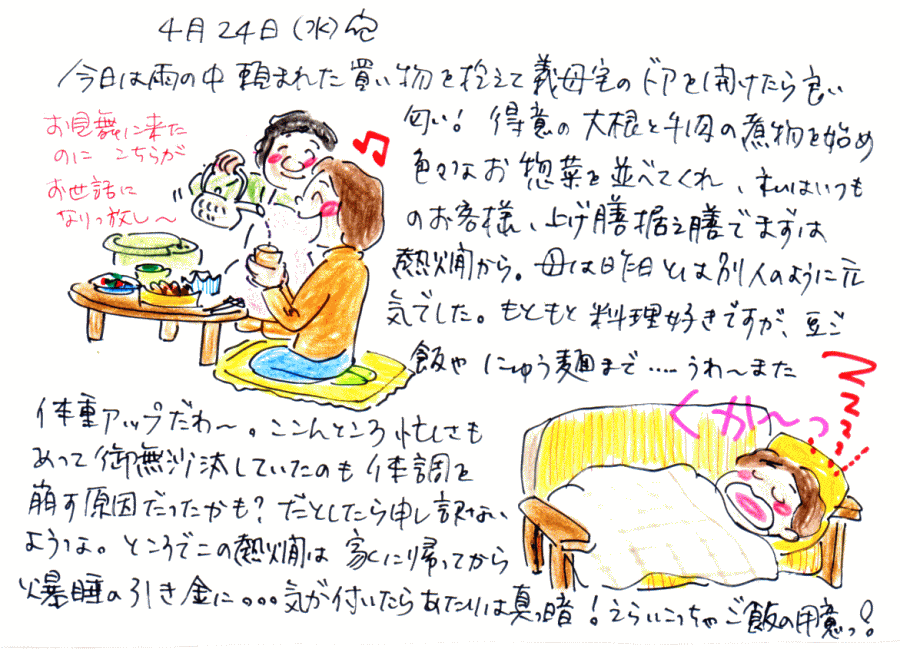 4月24日(水)
今日は雨の中頼まれた買い物を抱えて義母宅のドアを開けたら良い
お見舞に来た
のにこちらが
お世話に
なりっ放し〜
匂い!得意の大根と牛肉の煮物を始め
色々なお惣菜を並べてくれ、私はいつも
のお客様、上げ膳据え膳でまずは
熱燗から。母は昨日とは別人のように元
気でした。もともと料理好きですが、豆ご
飯やにゅう麺まで‥‥うわ〜また
体重アップだわ〜。ここんところ忙しさも
あって御無沙汰していたのも体調を
崩す原因だったかも?だとしたら申し訳ない
ような。ところでこの熱燗は家に帰ってから
爆睡の引き金に。。。気が付いたらあたりは真っ暗!えらいこっちゃご飯の用意っ!
くか〜っ
zzzzz